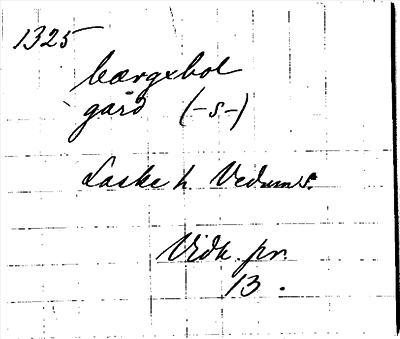 1325
bærgxbol
gård (-s-)
Laske h. Vedums.
Vidk. pr.
13.